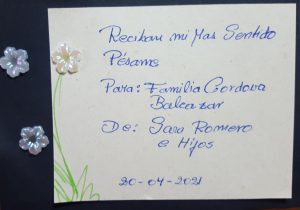 Reciban mi Mas Sentido
Pésame
Para: Familia Cordova
Balcazar
De: Sara Romero
e Hijos
20-04-2021